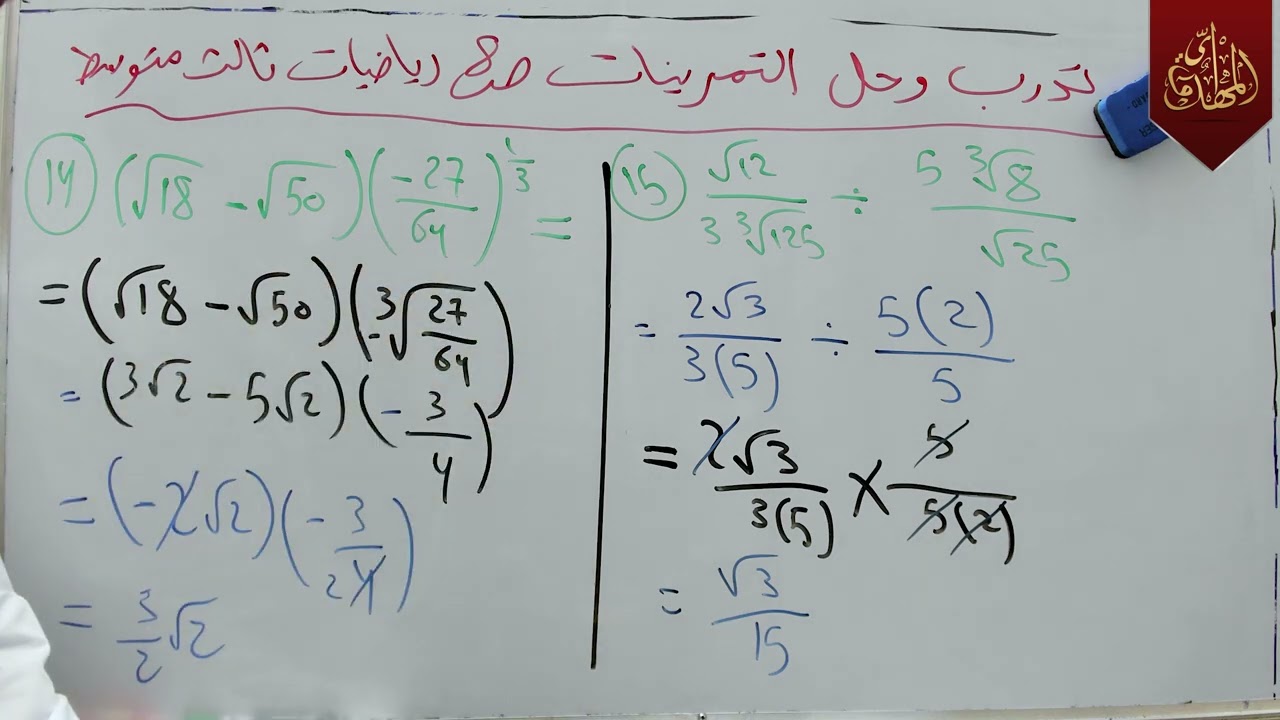 تدرب وحل التمرينات ص8 رياضيات ثالث متوسط
14 (√18 - √50)(-27/64)^1/3 =
= (√18 - √50)(-³√27/64)
= (3√2 - 5√2)(-3/4)
= (-2√2)(-3/4) 2
= 3/2 √2
15 √12/3³√125 ÷ 5³√8/√25
= 2√3/3(5) ÷ 5(2)/5
= 2√3/3(5) × 5/5(2)
= √3/15